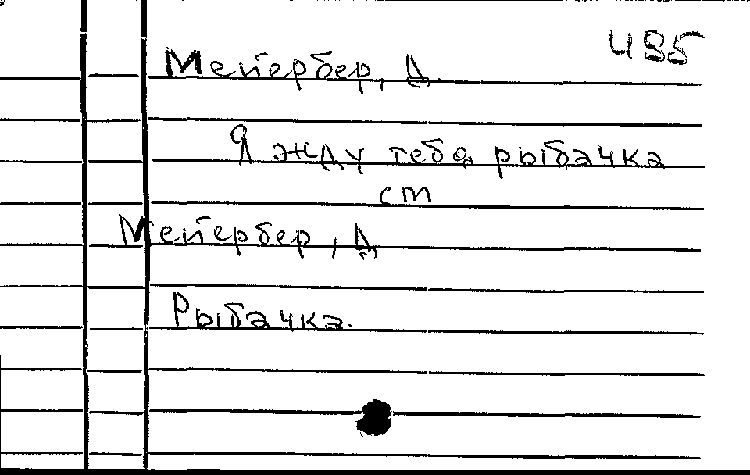 485
Мейербер, Д.
Я жду тебя, рыбачка
см
Мейербер, Д.
Рыбачка.